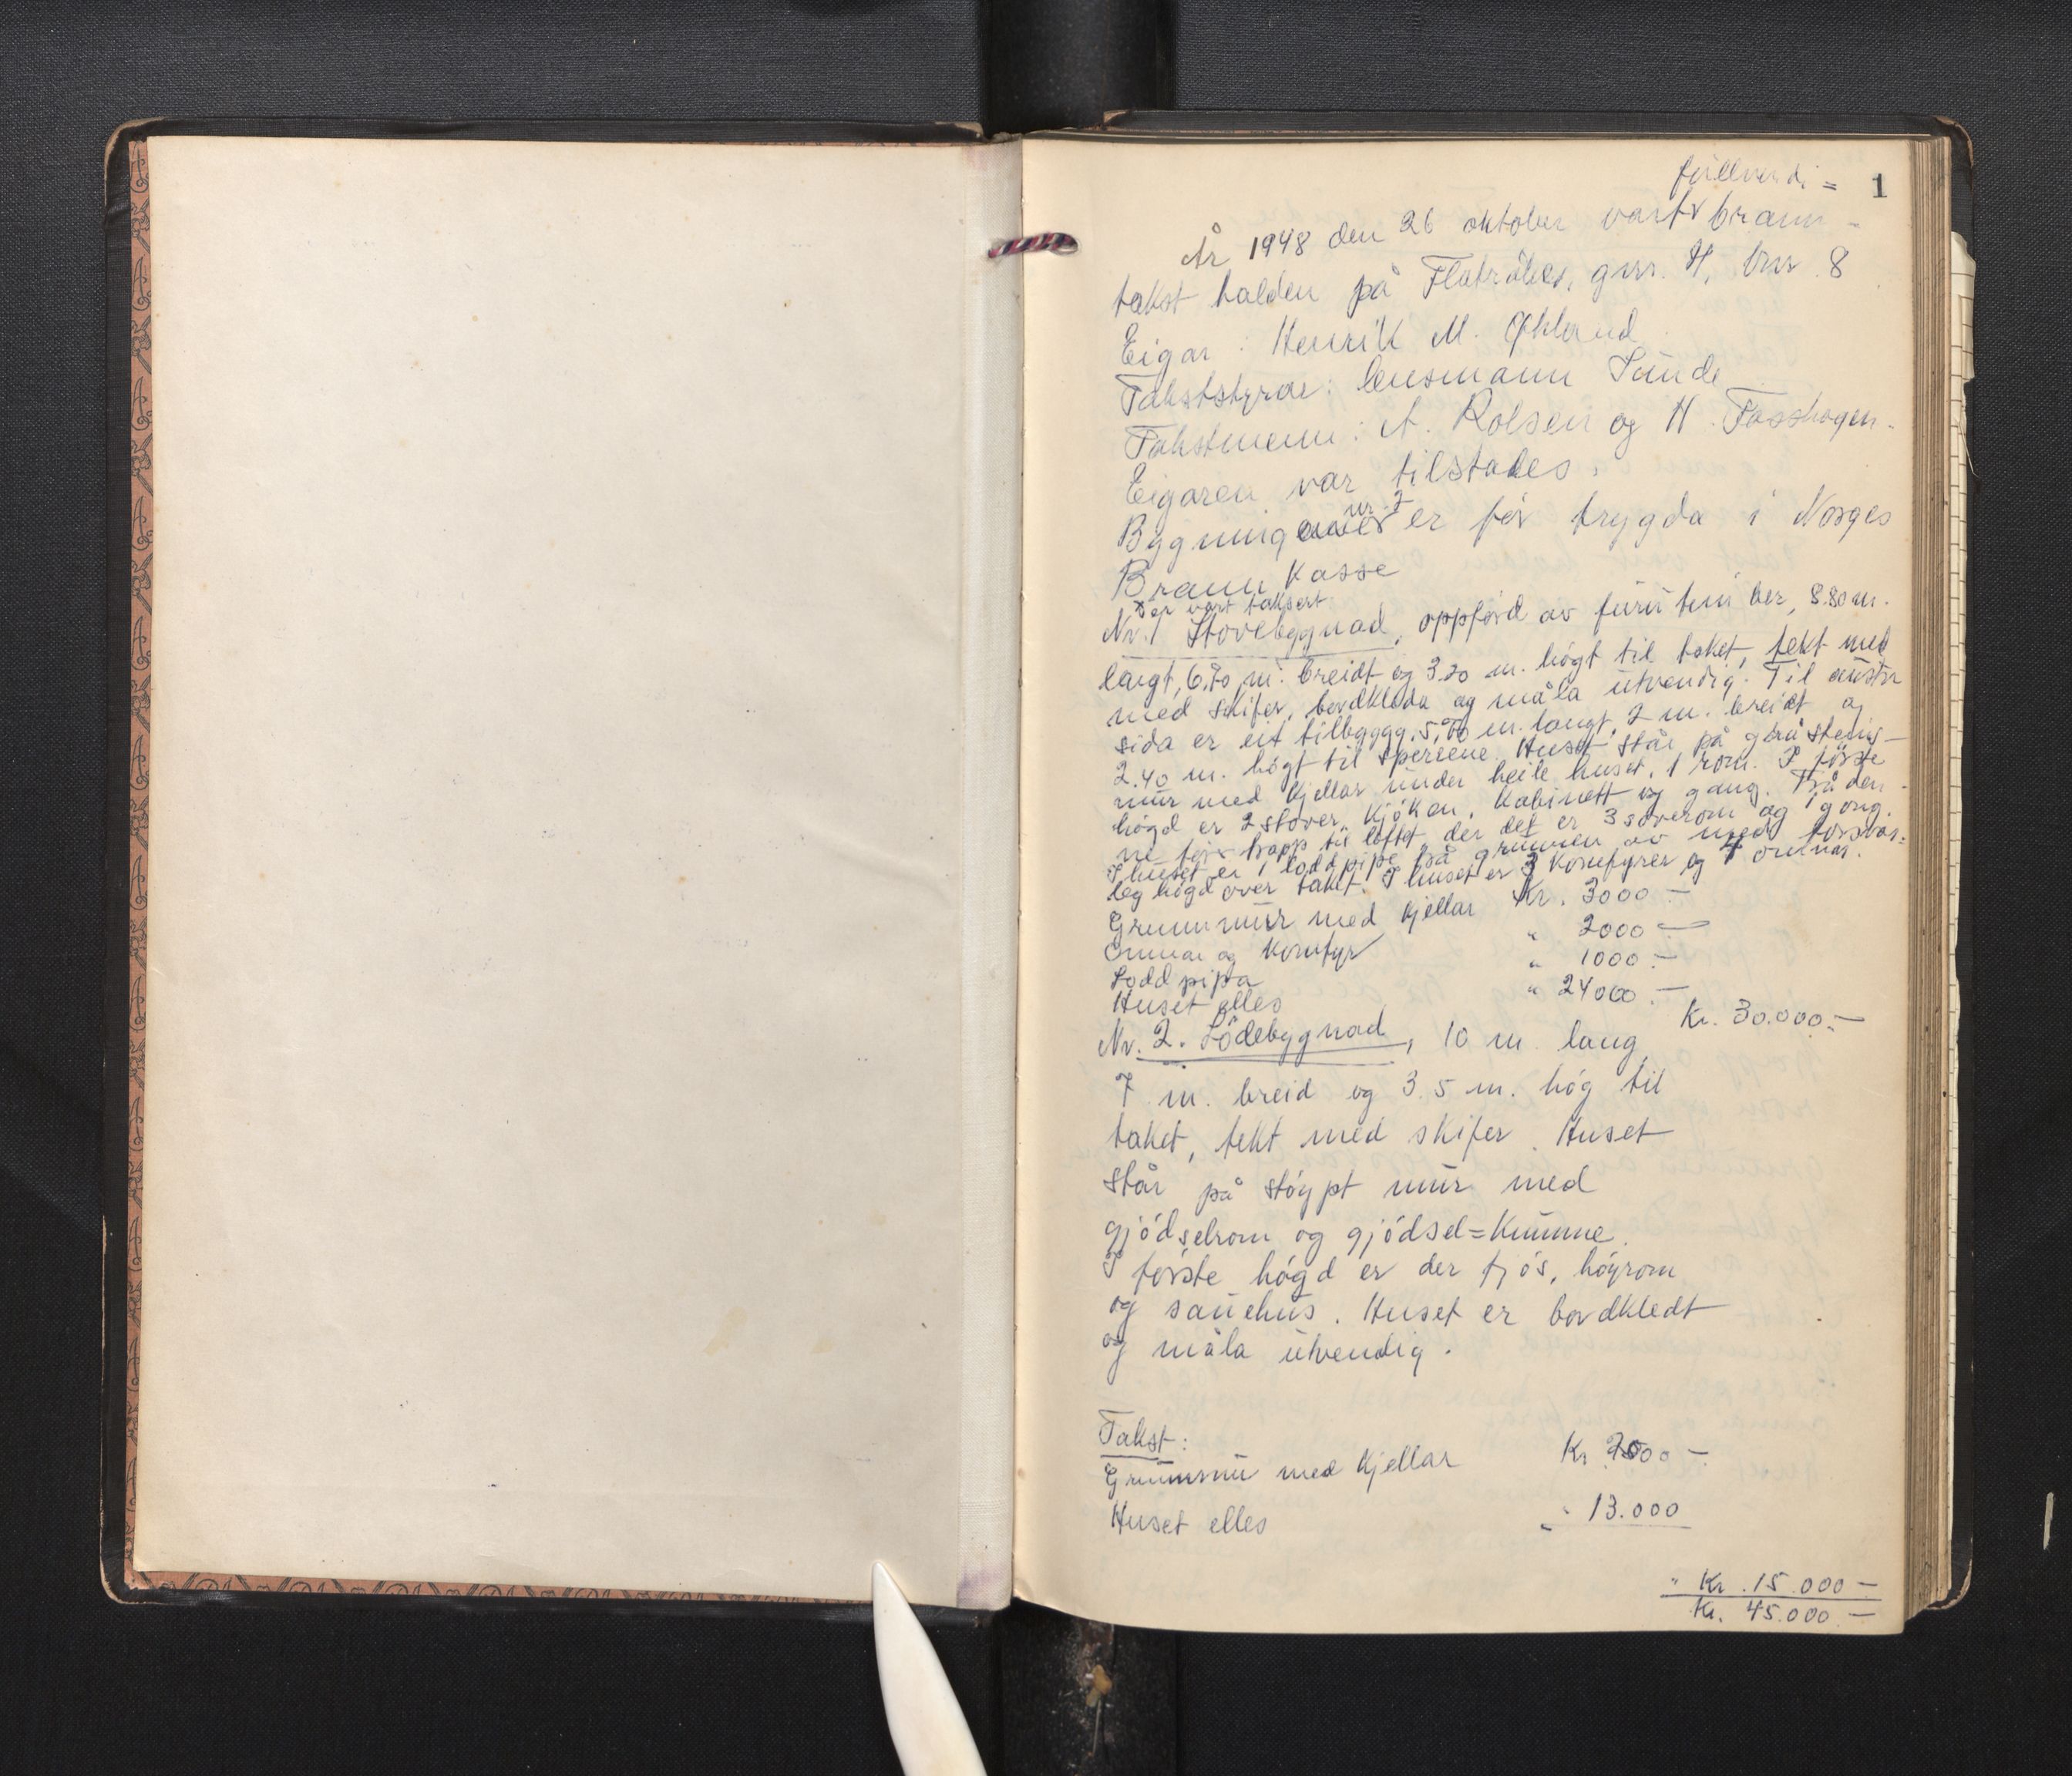 1
fullverdi =
År 1948 den 26 oktober vart brann-
takst halden på Flatråker, gnr. 4, bnr. 8
Eigar: Henrik M. Økland
Takststyrar: lensmann Sunde
Takstmenn: A. Rolsen og H. Tosshagen.
Eigaren var tilstades.
nr. 2
Bygning er før trygda i Norges
Brannkasse
er vart taksert:
Nr. 1 Stovebygnad, oppförd av furutimber, 8.80 m.
langt, 6.70 m. breidt og 3.20 m. högt til taket, tekt med
med skifer, bordkleda og måla utvendig. Til austr
sida er eit tilbyggg, 5,70 m. langt, 2 m. breidt og
2.40 m. högt til sperrene. Huset står på gråsteins-
mur med kjellar under heile huset, 1 rom. I förste
högd er 2 stover, kjöken, kabinett og gang. Frå den-
ne före trapp til loftet, der det er 3 soverom og 1 gong.
I huset er 1 loddpipe frå grunnen av med forsvar-
leg högd over taket. I huset er 3 komfyrer og 4 omnar.
Grunnmur med kjellar Kr. 3000 -
Omnar og komfyr " 2000 -
Loddpipa " 1000 -
Huset elles " 24000 -
Kr. 30.000.-
Nr. 2. Lödebygnad, 10 m. lang,
7 m. breid og 3.5 m. hög til
taket, tekt med skifer. Huset
står på stöypt mur med
gjödselrom og gjödsel=kumme.
I förste högd er der fjös, höyrom
og sauehus. Huset er bordkledt
og måla utvendig.
Takst:
Grunnmu med kjellar Kr 2000 -
Huset elles " 13.000
" Kr. 15.000 -
Kr. 45.000 -